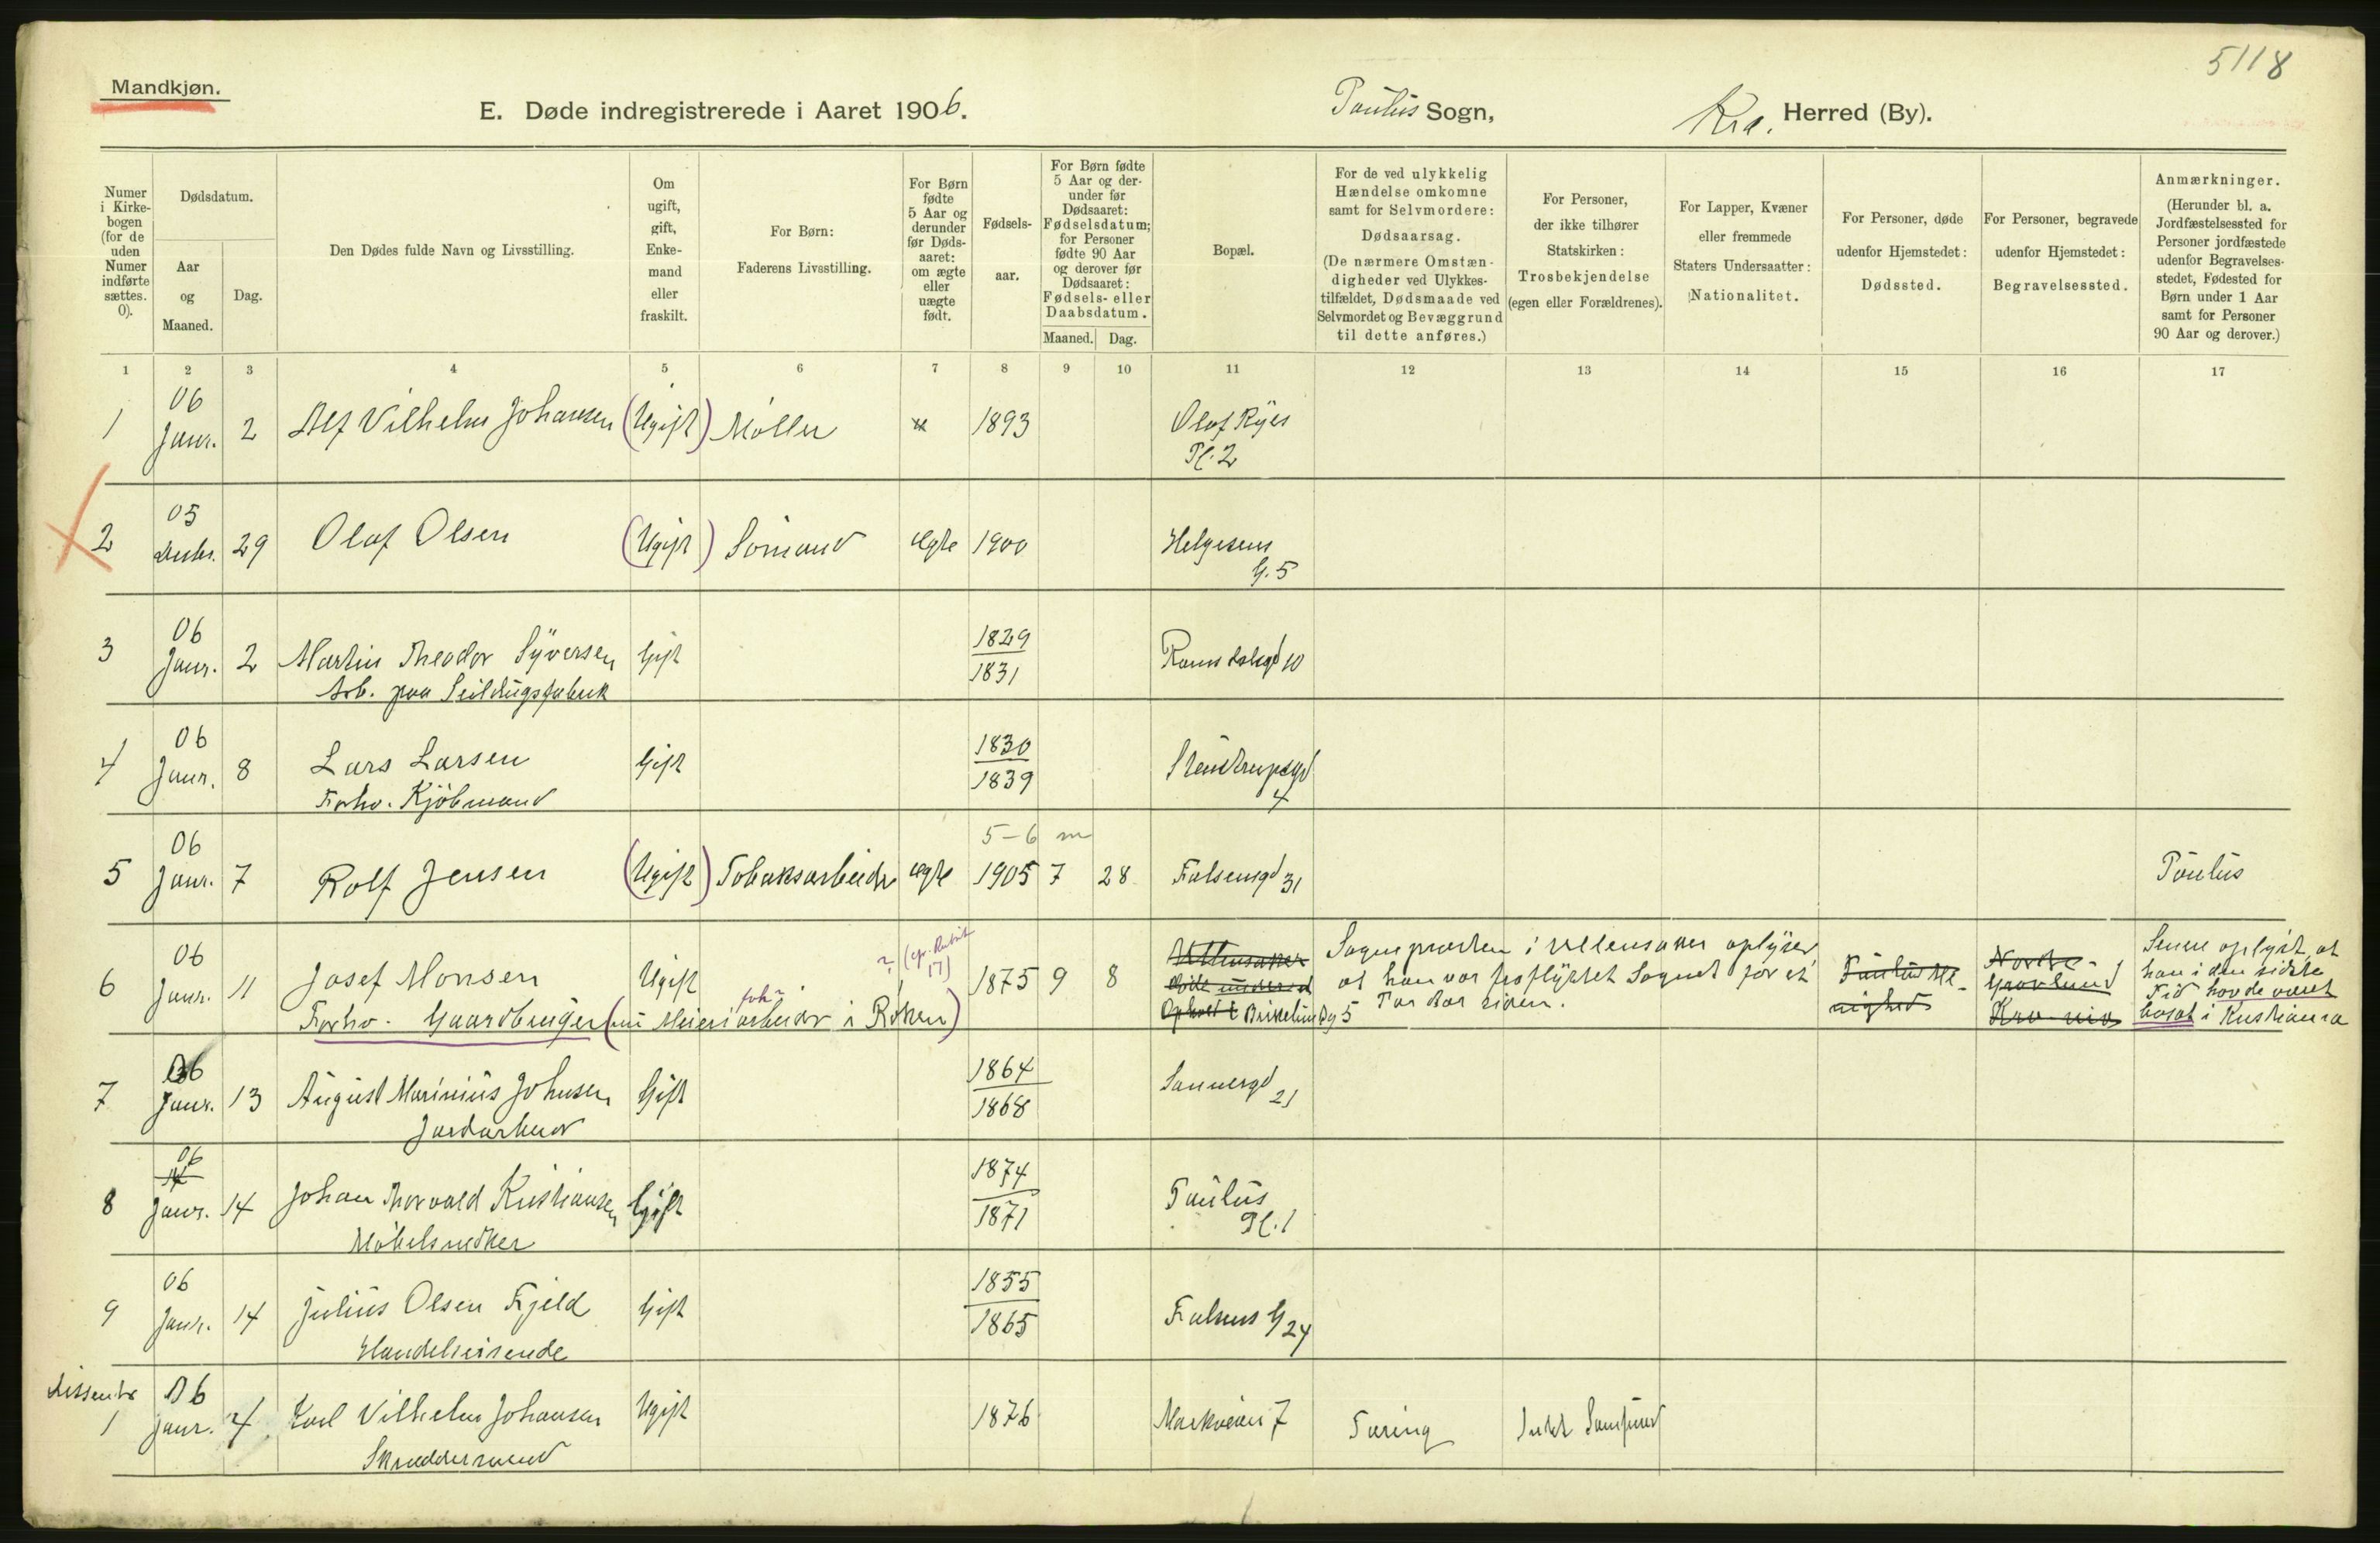 5118
Mandkjøn.
E. Døde indregistrerede i Aaret 1906. Paulus Sogn, Kra. Herred (By).
Numer i Kirkebogen (for de uden Numer indførte sættes. 0).
Dødsdatum.
Aar og Maaned.
Dag.
Den Dødes fulde Navn og Livsstilling.
Om ugift, gift, Enkemand eller fraskilt.
For Børn: Faderens Livsstilling.
For Børn fødte 5 Aar og derunder før Dødsaaret: om ægte eller uægte født.
Fødselsaar.
For Børn fødte 5 Aar og derunder før Dødsaaret: Fødselsdatum; for Personer fødte 90 Aar og derover før Dødsaaret: Fødsels- eller Daabsdatum.
Maaned. Dag.
Bopæl.
For de ved ulykkelig Hændelse omkomne samt for Selvmordere: Dødsaarsag. (De nærmere Omstændigheder ved Ulykkestilfældet, Dødsmaade ved Selvmordet og Bevæggrund til dette anføres.)
For Personer, der ikke tilhører Statskirken: Trosbekjendelse (egen eller Forældrenes).
For Lapper, Kvæner eller fremmede Staters Undersaatter: Nationalitet.
For Personer, døde udenfor Hjemstedet: Dødssted.
For Personer, begravede udenfor Hjemstedet: Begravelsessted.
Anmærkninger. (Herunder bl. a. Jordfæstelsessted for Personer jordfæstede udenfor Begravelsesstedet, Fødested for Børn under 1 Aar samt for Personer 90 Aar og derover.)
1 2 3 4 5 6 7 8 9 10 11 12 13 14 15 16 17
06
1 Janr. 2 Alf Vilhelm Johansen (Ugift) Møller 1893 Olaf Ryes
Pl. 2
05
2 Decbr. 29 Olaf Olsen (Ugift) Sømand ægte 1900 Helgesens
G. 5
06
3 Janr. 2 Martin Theodor Syversen Gift 1829 1831 Romsdalsgd 10
Arb. paa Seildugsfabrik
06
4 Janr. 8 Lars Larsen Gift 1830 1839 Steenstrupsgd
4
Forhv. Kjøbmand
06 5-6 m
5 Janr. 7 Rolf Jensen (Ugift) Tobaksarbeider ægte 1905 7 28 Falsensgd 31 Paulus
06
6 Janr. 11 Josef Monsen Ugift ? (cfr. Rubrik 17) 1875 9 8
Forhv. Gaardbruger (nu Meieriarbeider i Røken)
Ullensaker
Opholdt Birkelundg 5
Sognepresten i Ullensaker oplyser
at han var fraflyttet Sognet for et
Par Aar siden.
Paulus Me-
nighed
Nordre
Gravlund
Kra-nia
Senere oplyst, at
han i den sidste
Tid havde været
bosat i Kristiania
06
7 Janr. 13 August Marinius Johnsen Gift 1864 1868 Sannergd 21
Jordarbeid
06
8 Janr. 14 Johan Thorvald Kristiansen Gift 1874 1871 Paulus
Pl. 1
Møbelsnedker
06
9 Janr. 14 Julius Olsen Fjeld Gift 1855 1865 Falsens G 24
Handelsreisende
Dissenter 06
1 Janr. 4 Karl Vilhelm Johansen Ugift 1876 Markveien 7 Tæring
Skræddersvend